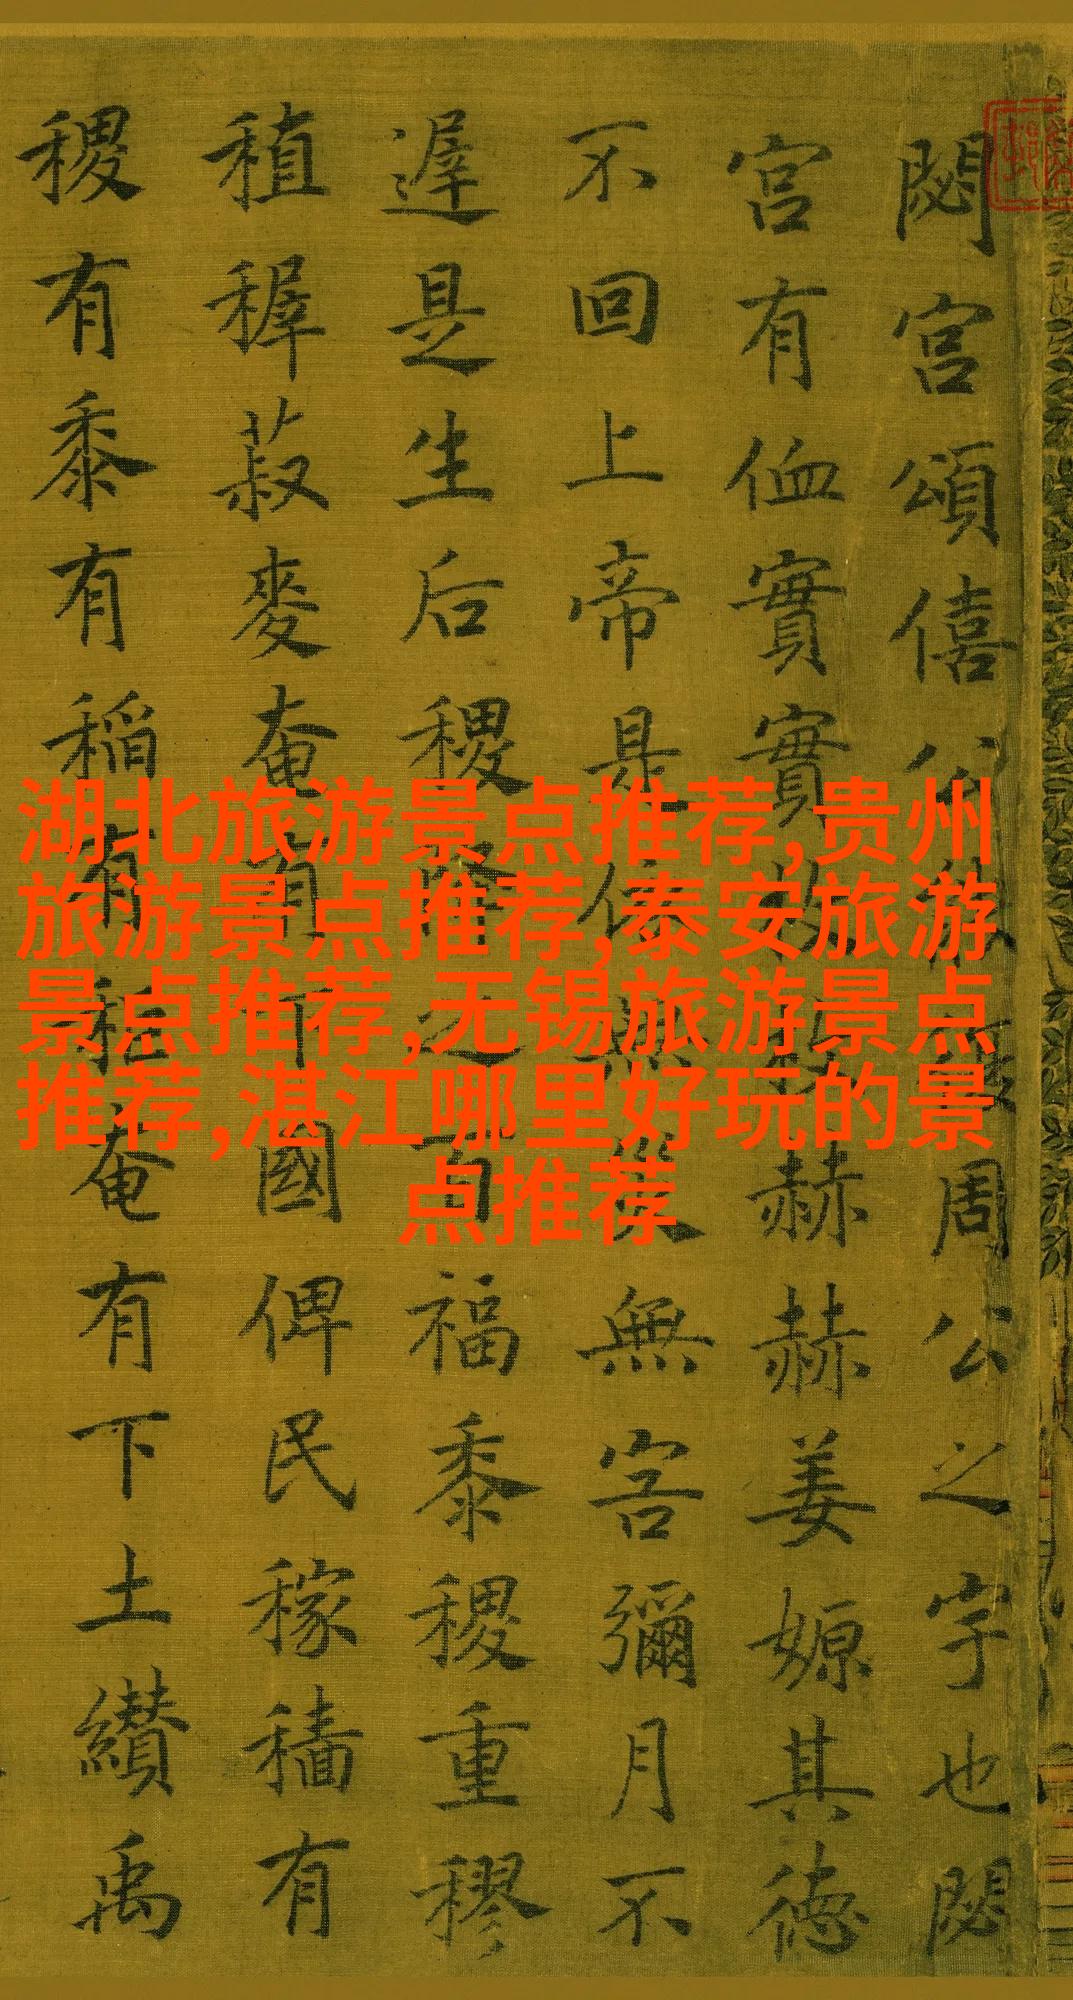 閟宮頌僖公能復周公之宇也閟
宮有侐實實枚枚赫赫姜嫄其德
不回上帝是依無災無害彌月不
遲是生后稷降之百福黍稷重穋
稙稺菽麥奄有下國俾民稼穡有
稷有黍有稻有秬奄有下土纘禹
湖北旅游景点推荐,贵州
旅游景点推荐,泰安旅游
景点推荐,无锡旅游景点
推荐,湛江哪里好玩的景
点推荐